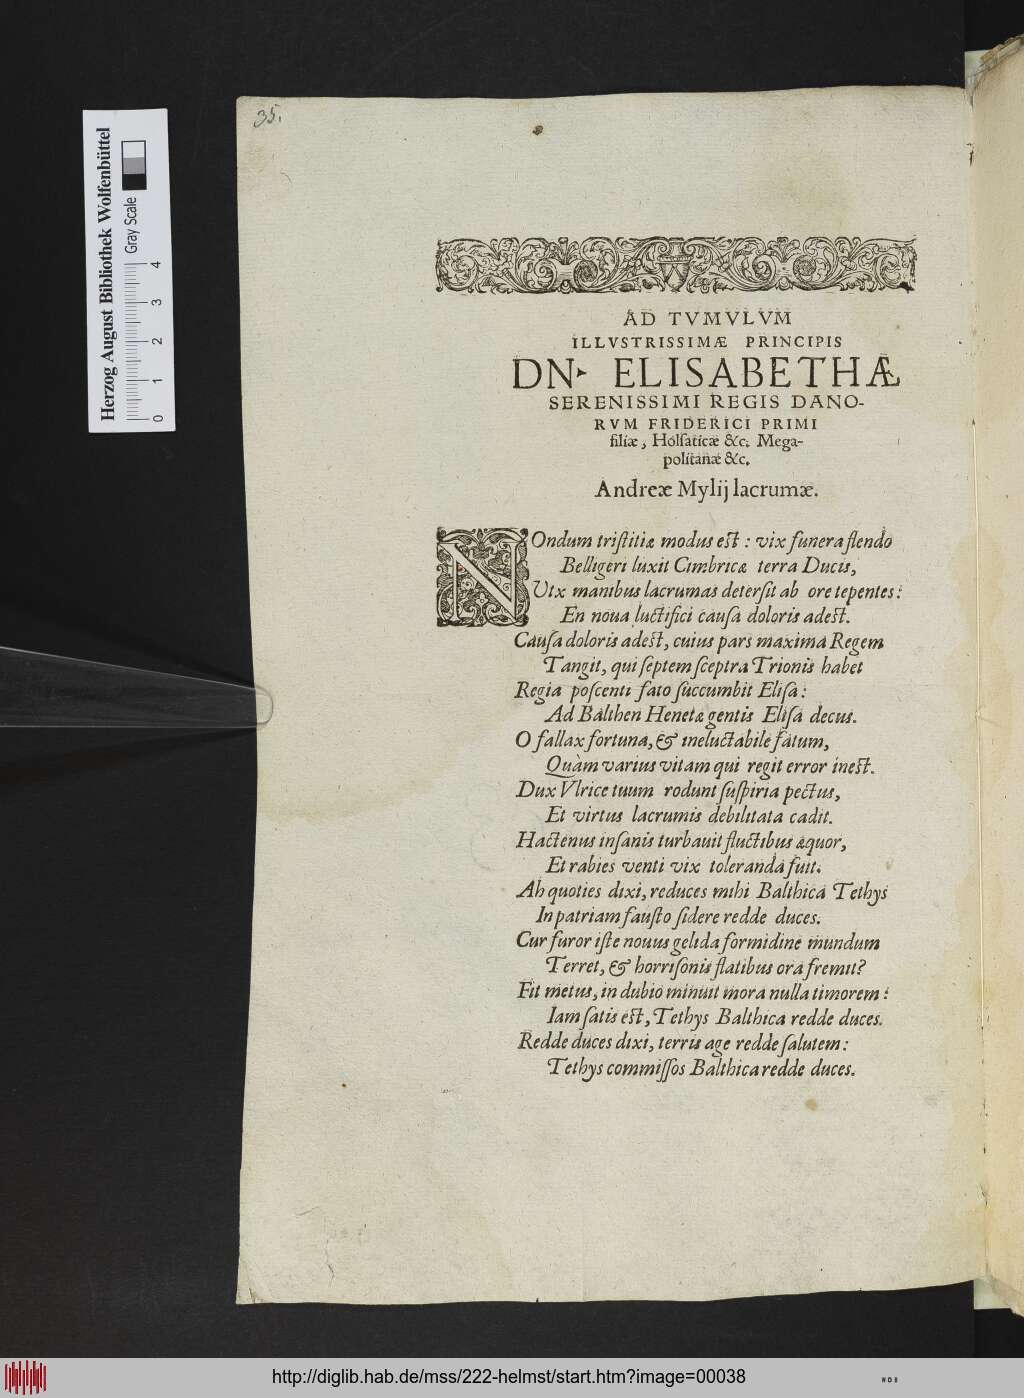 35.
Herzog August Bibliothek Wolfenbüttel
Gray Scale
0 1 2 3 4
AD TVMVLVM
ILLVSTRISSIMÆ PRINCIPIS
DN. ELISABETHÆ
SERENISSIMI REGIS DANO-
RVM FRIDERICI PRIMI
filiæ, Holſaticæ &c. Mega-
politanæ &c.
Andreæ Mylij lacrumæ.
NOndum triſtitiæ modus est : vix funera flendo
Belligeri luxit Cimbricæ terra Ducis,
Vix manibus lacrumas deterſit ab ore tepentes:
En noua luctifici cauſa doloris adest.
Cauſa doloris adest, cuius pars maxima Regem
Tangit, qui ſeptem ſceptra Trionis habet
Regia poſcenti fato ſuccumbit Eliſa:
Ad Balthen Henetæ gentis Eliſa decus.
O fallax fortuna, & ineluctabile fatum,
Quàm varius vitam qui regit error inest.
Dux Vlrice tuum rodunt ſuſpiria pectus,
Et virtus lacrumis debilitata cadit.
Hactenus inſanis turbauit fluctibus æquor,
Et rabies venti vix toleranda fuit.
Ah quoties dixi, reduces mihi Balthica Tethys
In patriam fauſto ſidere redde duces.
Cur furor iſte nouus gelida formidine mundum
Terret, & horriſonis flatibus ora fremit?
Fit metus, in dubio minuit mora nulla timorem:
Iam ſatis est, Tethys Balthica redde duces.
Redde duces dixi, terris age redde ſalutem:
Tethys commiſſos Balthica redde duces.
http://diglib.hab.de/mss/222-helmst/start.htm?image=00038